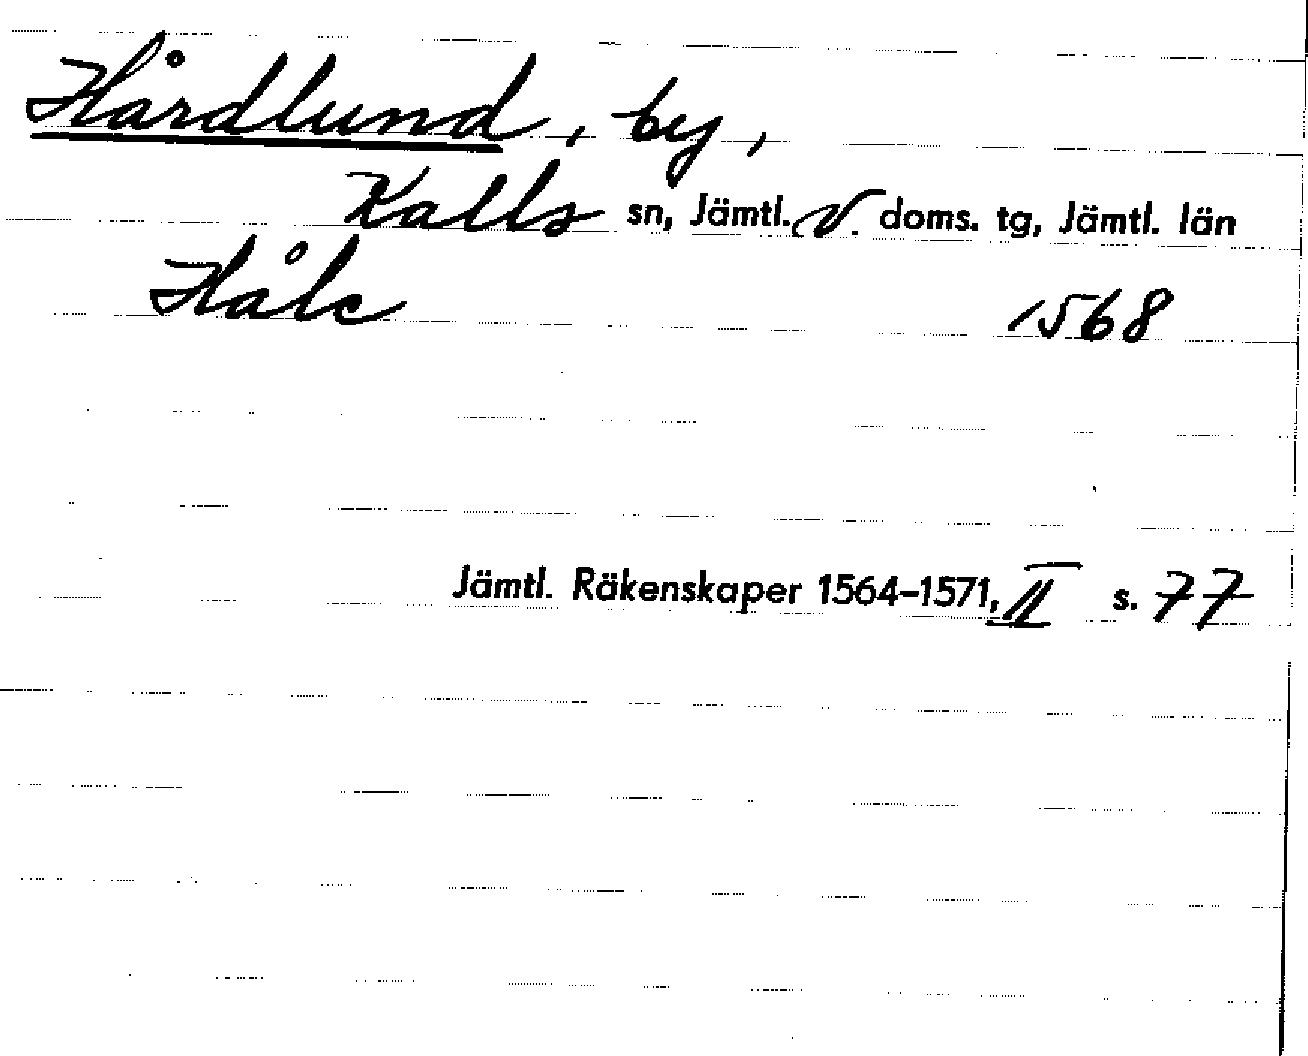 Hårdlund, by,
Kalls sn, Jämtl. v. doms. tg, Jämtl. län
Håle 1568
Jämtl. Räkenskaper 1564–1571, II s. 77